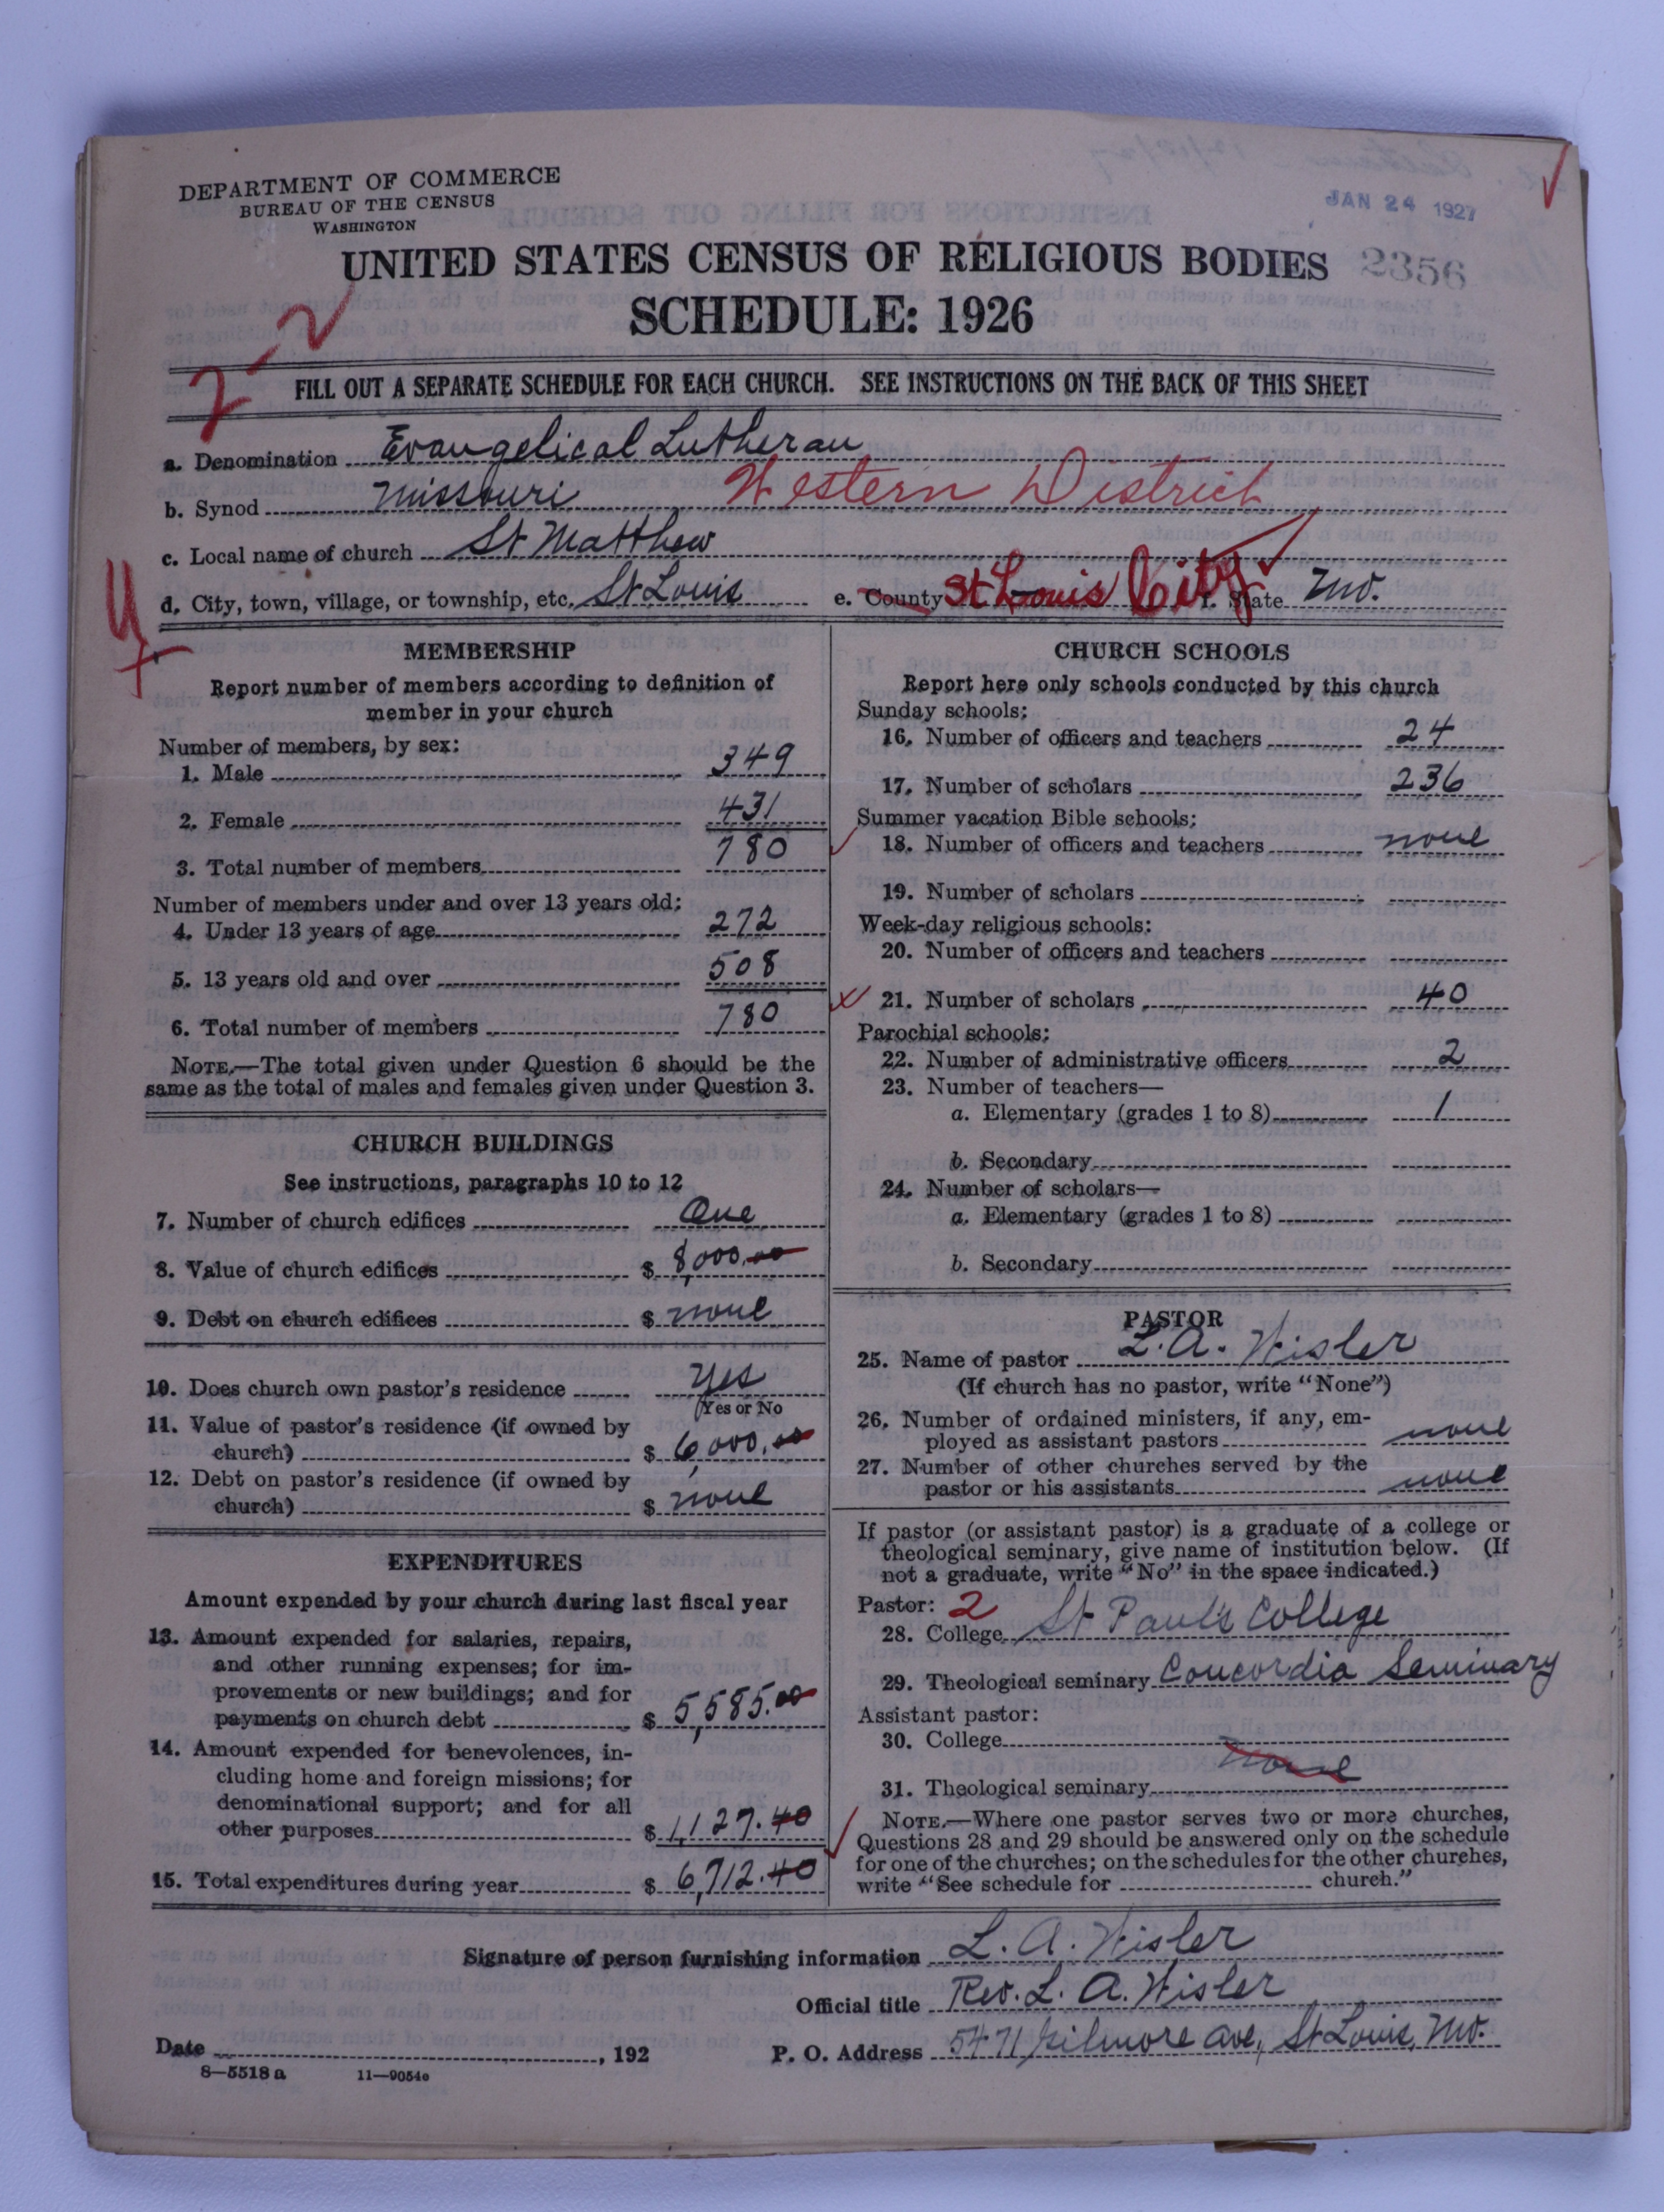 DEPARTMENT OF COMMERCE
BUREAU OF THE CENSUS
WASHINGTON
JAN 24 1927
UNITED STATES CENSUS OF RELIGIOUS BODIES 2356
SCHEDULE: 1926
2-2
FILL OUT A SEPARATE SCHEDULE FOR EACH CHURCH. SEE INSTRUCTIONS ON THE BACK OF THIS SHEET
a. Denomination Evangelical Lutheran
b. Synod Missouri Western District
c. Local name of church St Matthew
d. City, town, village, or township, etc. St Louis e. County St Louis City f. State Mo.
MEMBERSHIP
Report number of members according to definition of
member in your church
Number of members, by sex:
1. Male 349
2. Female 431
3. Total number of members 780
Number of members under and over 13 years old:
4. Under 13 years of age 272
5. 13 years old and over 508
6. Total number of members 780
NOTE.—The total given under Question 6 should be the
same as the total of males and females given under Question 3.
CHURCH BUILDINGS
See instructions, paragraphs 10 to 12
7. Number of church edifices One
8. Value of church edifices $ 8,000.00
9. Debt on church edifices $ none
10. Does church own pastor's residence Yes
(Yes or No
11. Value of pastor's residence (if owned by
church) $ 6,000.00
12. Debt on pastor's residence (if owned by
church) $ none
EXPENDITURES
Amount expended by your church during last fiscal year
13. Amount expended for salaries, repairs,
and other running expenses; for im-
provements or new buildings; and for
payments on church debt $ 5,585.00
14. Amount expended for benevolences, in-
cluding home and foreign missions; for
denominational support; and for all
other purposes $ 1,127.40
15. Total expenditures during year $ 6,712.40
CHURCH SCHOOLS
Report here only schools conducted by this church
Sunday schools:
16. Number of officers and teachers 24
17. Number of scholars 236
Summer vacation Bible schools:
18. Number of officers and teachers none
19. Number of scholars
Week-day religious schools:
20. Number of officers and teachers
21. Number of scholars 40
Parochial schools:
22. Number of administrative officers 2
23. Number of teachers—
a. Elementary (grades 1 to 8) 1
b. Secondary
24. Number of scholars—
a. Elementary (grades 1 to 8)
b. Secondary
PASTOR
25. Name of pastor L. A. Wisler
(If church has no pastor, write "None")
26. Number of ordained ministers, if any, em-
ployed as assistant pastors none
27. Number of other churches served by the
pastor or his assistants none
If pastor (or assistant pastor) is a graduate of a college or
theological seminary, give name of institution below. (If
not a graduate, write "No" in the space indicated.)
Pastor: 2
28. College St Paul's College
29. Theological seminary Concordia Seminary
Assistant pastor:
30. College
none
31. Theological seminary
NOTE.—Where one pastor serves two or more churches,
Questions 28 and 29 should be answered only on the schedule
for one of the churches; on the schedules for the other churches,
write "See schedule for church."
Signature of person furnishing information L. A. Wisler
Official title Rev. L. A. Wisler
Date , 192 P. O. Address 5471 Gilmore Ave, St Louis, Mo.
8—5518 a 11—9054e